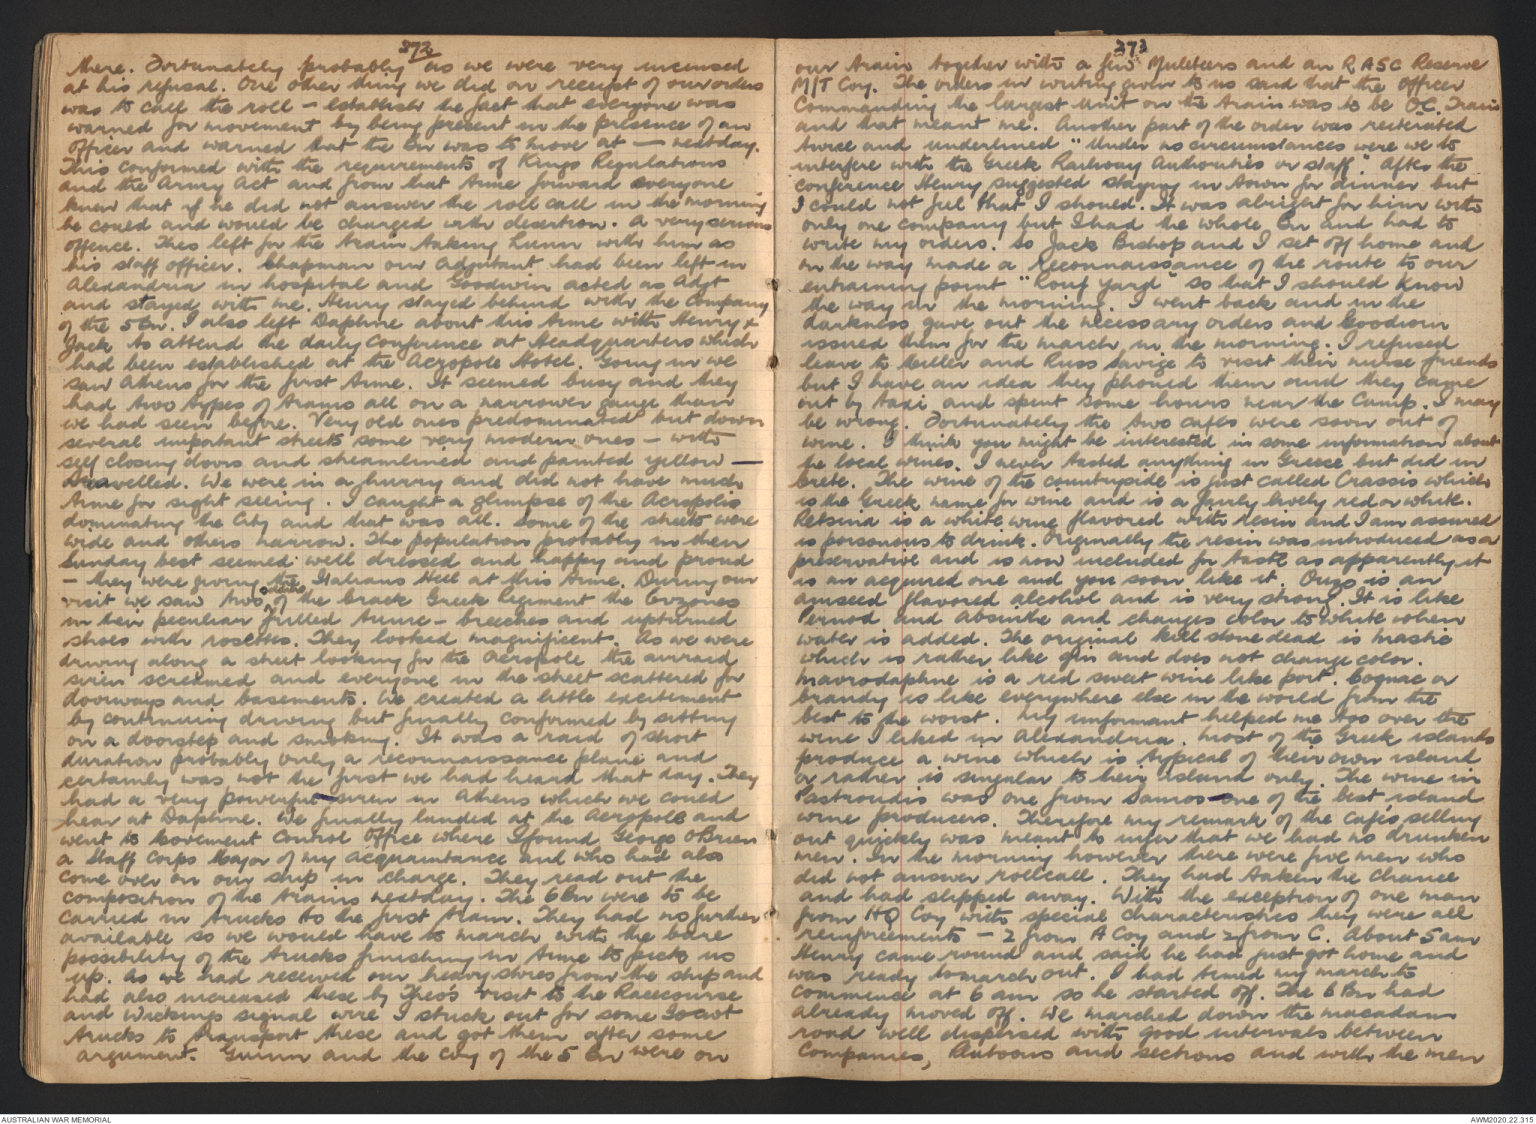 372
there. Fortunately probably as we were very incensed
at his refusal. One other thing we did on receipt of our orders
was to call the roll - establish the fact that everyone was
warned for movement by being present in the presence of an
officer and warned that the Bn was to move at — next day.
This conformed with the requirements of Kings Regulations
and the Army Act and from that time forward everyone
knew that if he did not answer the roll call in the morning
he could and would be charged with desertion. A very serious
offence. Theo left for the train taking Lunn with him as
his staff officer. Chapman our Adjutant had been left in
Alexandria in hospital and Goodwin acted as Adjt
and stayed with me. Henry stayed behind with the company
of the 5 Bn. I also left Daphne about this time with Henry &
Jack to attend the daily conference at Headquarters which
had been established at the Acropole Hotel. Going in we
saw Athens for the first time. It seemed busy and they
had two types of trams all on a narrower gauge than
we had seen before. Very old ones predominated but down
several important streets some very modern ones - with
self closing doors and streamlined and painted yellow —
travelled. We were in a hurry and did not have much
time for sight seeing. I caught a glimpse of the Acropolis
dominating the City and that was all. Some of the streets were
wide and others narrow. The population probably in their
Sunday best seemed well dressed and happy and proud
- they were giving the Italians Hell at this time. During our
visit we saw two of the Crack Greek Regiment the Evzones
in their peculiar frilled tunic - breeches and upturned
shoes with rosettes. They looked magnificent. As we were
driving along a street looking for the Acropole the airraid
siren screamed and everyone in the street scattered for
doorways and basements. We created a little excitement
by continuing driving but finally conformed by sitting
on a doorstep and smoking. It was a raid of short
duration probably only a reconnaissance plane and
certainly was not the first we had heard that day. They
had a very powerful siren in Athens which we could
hear at Daphne. We finally landed at the Acropole and
went to Movement Control Office where I found George O'Brien
a Staff Corps Major of my acquaintance and who had also
come over on our ship in charge. They read out the
composition of the trains next day. The 6 Bn were to be
carried in trucks to the first train. They had no further
available so we would have to march with the bare
possibility of the trucks finishing in time to pick us
up. As we had received our heavy stores from the ship and
had also increased these by Theo's visit to the Racecourse
and Wickings signal wire I stuck out for some 30cwt
trucks to transport these and got them after some
argument. Guinn and the coy of the 5 Bn were on
373
our train together with a few Muleteers and an RASC Reserve
M/T Coy. The orders in writing given to us said that the Officer
Commanding the largest unit on the train was to be OC. Train
and that meant me. Another part of the order was reiterated
twice and underlined "Under no circumstances were we to
interfere with the Greek Railway Authorities or staff." After the
conference Henry suggested staying in town for dinner but
I could not feel that I should. It was alright for him with
only one company but I had the whole Bn and had to
write my orders. So Jack Bishop and I set off home and
on the way made a Reconnaissance of the route to our
entraining point "Rouf Yard" so that I should know
the way in the morning. I went back and in the
darkness gave out the necessary orders and Goodwin
issued them for the march in the morning. I refused
leave to Miller and Russ Savige to visit their nurse friends
but I have an idea they phoned them and they came
out by taxi and spent some hours near the Camp. I may
be wrong. Fortunately the two cafes were soon out of
wine. I think you might be interested in some information about
the local wines. I never tasted anything in Greece but did in
Crete. The wine of the countryside is just called Crassis which
is the Greek name for wine and is a fairly lively red or white.
Retsina is a white wine flavored with resin and I am assured
is poisonous to drink. Originally the resin was introduced as a
preservative and is now included for taste as apparently it
is an acquired one and you soon like it. Ouzo is an
aniseed flavored alcohol and is very strong. It is like
Pernod and Absinthe and changes color to white when
water is added. The original kill stone dead is mastic
which is rather like gin and does not change color.
Mavrodaphne is a red sweet wine like port. Cognac or
brandy is like everywhere else in the world from the
best to the worst. My informant helped me too over the
wine I liked in Alexandria. Most of the Greek islands
produce a wine which is typical of their own island
or rather is singular to their island only. The wine in
Pastroudis was one from Samos - one of the best island
wine producers. Therefore my remark of the cafes selling
out quickly was meant to infer that we had no drunken
men. In the morning however there were five men who
did not answer rollcall. They had taken the chance
and had slipped away. With the exception of one man
from HQ Coy with special characteristics they were all
reinforcements - 2 from A Coy and 2 from C. About 5 am
Henry came round and said he had just got home and
was ready to march out. I had timed my march to
commence at 6 am so he started off. The 6 Bn had
already moved off. We marched down the macadam
road well dispersed with good intervals between
Companies, Platoons and sections and with the men
AUSTRALIAN WAR MEMORIAL
AWM2020.22.315